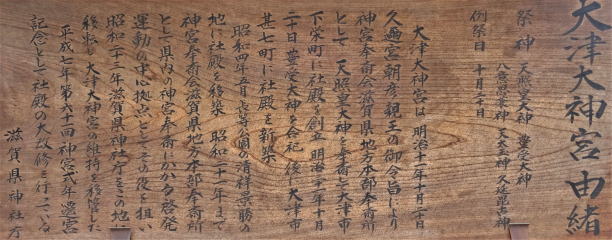 大津大神宮由緒
祭神 天照皇大神 豊受大神
八意思兼神 天太玉神 久延毘古神
例祭日 十月二十日
大津大神宮は 明治十一年十月二十日
久邇宮朝彦親王の御令旨により
神宮奉斎会滋賀県地方本部奉斎所
として 天照皇大神を奉斎し大津市
下栄町に社殿を創立 明治三十一年十月
二十日 豊受大神を合祀 後 大津市
甚七町に社殿を新築
昭和四年五月 長等公園の清祥景勝の
地に社殿を移築 昭和二十一年まで
神宮奉斎会滋賀県地方本部奉斎所
として県内の神宮奉斎にかかる啓発
運動の中心拠点としてその役を担い
昭和二十三年滋賀県神社庁をこの地に
移転し 大津大神宮の維持を移管した
平成七年第六十一回神宮式年遷宮
記念として 社殿の大改修を行っている
滋賀県神社庁